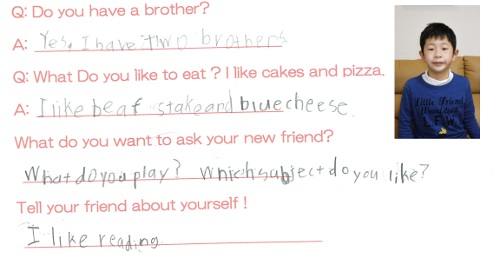 Q: Do you have a brother?
A: Yes, I have two brothers
Q: What Do you like to eat ? I like cakes and pizza.
A: I like beaf stake and blue cheese.
What do you want to ask your new friend?
What do you play? Which subject do you like?
Tell your friend about yourself !
I like reading
Little Friend